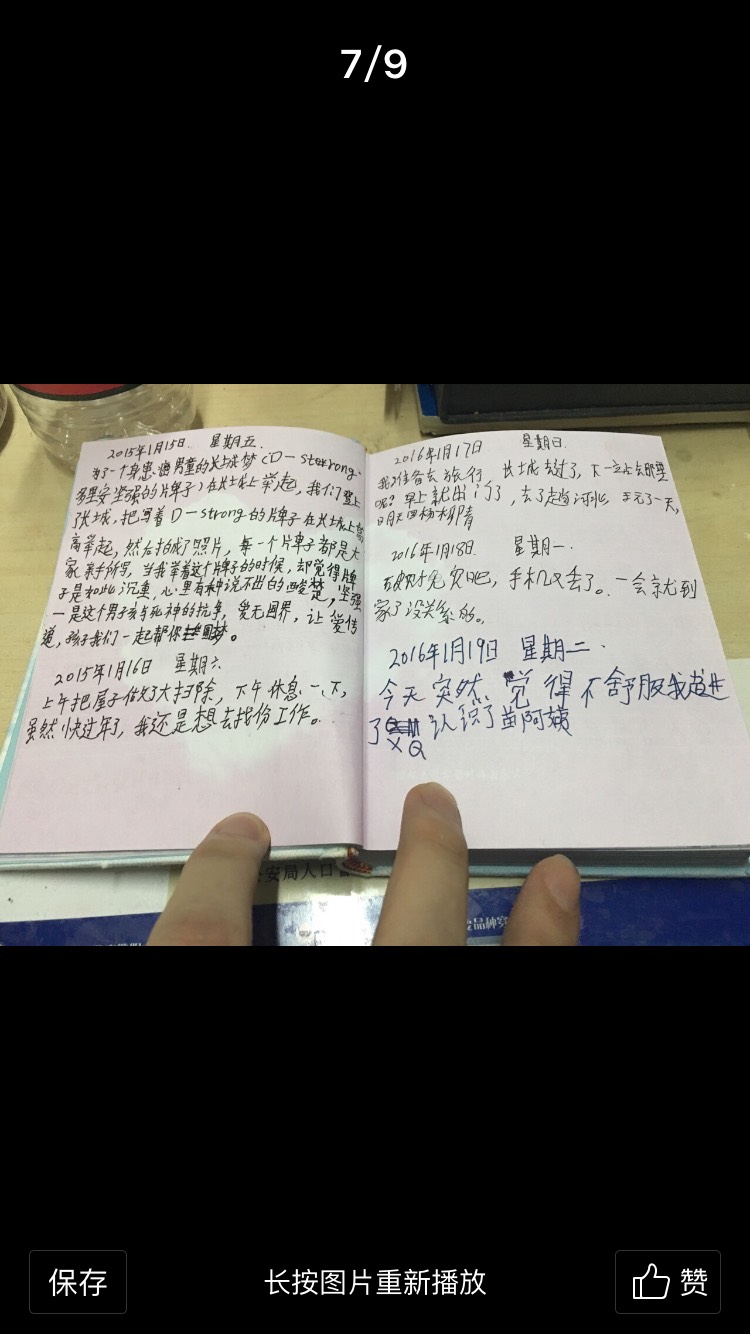 7/9
2015年1月15日 星期五
为了一个身患癌男童的长城梦(D-strong.
多里安坚强的牌子)在长城上举起,我们登上
了长城,把写着D-strong的牌子在长城上高
高举起,然后拍成了照片,每一个牌子都是大
家亲手所写,当我举着这个牌子的时候,却觉得牌
子是如此沉重,心里有种说不出的酸楚,坚强
一是这个男子孩与死神的抗争,爱无国界,让爱传
道,孩子我们一起帮你圆梦。
2015年1月16日 星期六
上午把屋子做了大扫除,下午休息一下,
虽然快过年了,我还是想去找份工作。
2016年1月17日 星期日
我准备去旅行 长城去过了,下一站去哪里
呢?早上就出门了,去了趟河北 玩了一天,
明天回杨柳青
2016年1月18日 星期一
破财免灾吧,手机又丢了。一会就到
家了没关系的。
2016年1月19日 星期二
今天突然觉得不舒服我进
了 认识了苗阿姨
QQ
安局人口
品种
保存
长按图片重新播放
赞